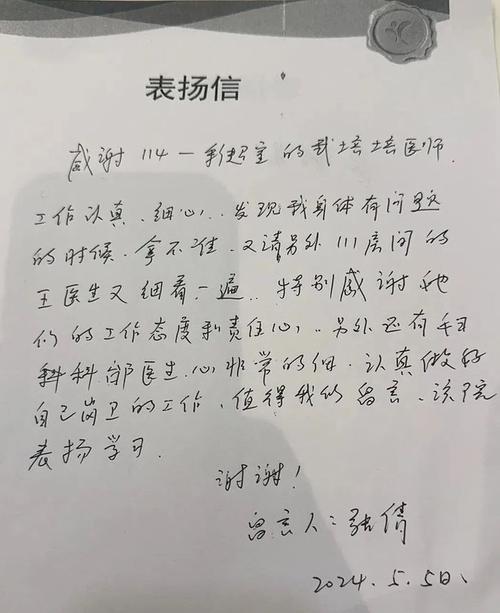 表扬信
感谢114一彩超室的武培培医师.
工作认真、细心、发现我身体有问题
的时候、拿不准、又请另外111房间的
王医生又细看一遍、特别感谢她
们的工作态度和责任心、另外还有
科科邵医生、心非常的细、认真做好
自己岗卫的工作、值得我们留言、该院
表扬学习.
谢谢!
留言人:张倩
2024.5.5日、